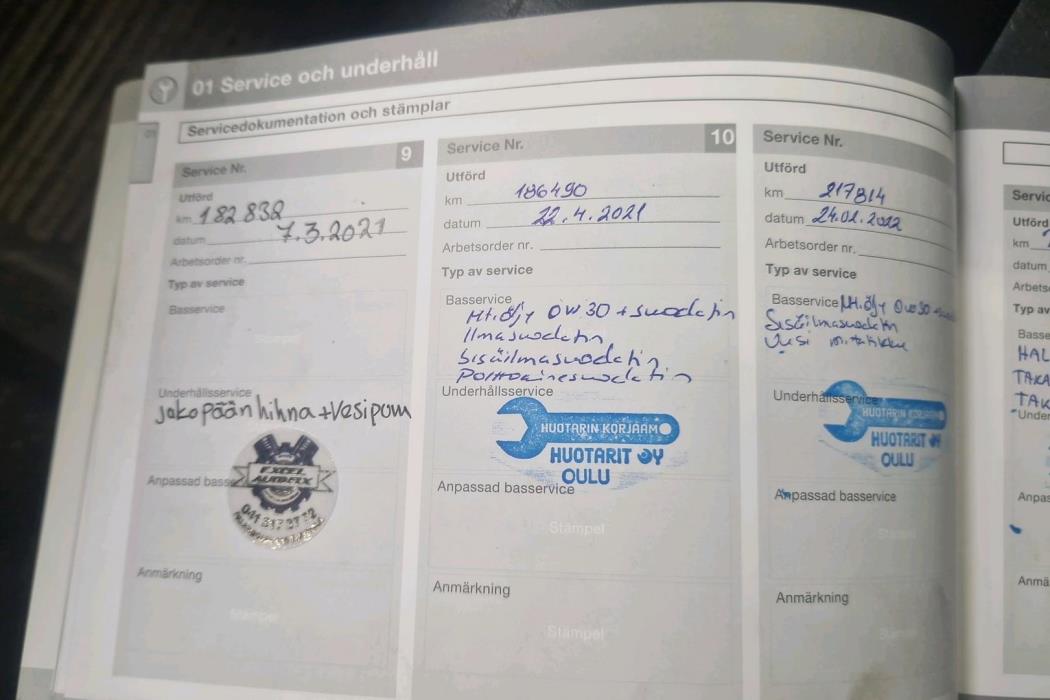 01 Service och underhåll
Servicedokumentation och stämplar
Service Nr. 9
Utförd
km 182 832
datum 7.3.2021
Arbetsorder nr.
Typ av service
Basservice
Stämpel
Underhållsservice
jakopään hihna + Vesipum
Anpassad basse
EXCEL
041 317 27 72
Anmärkning
Stämpel
Service Nr. 10
Utförd
km 186490
datum 22.4.2021
Arbetsorder nr.
Typ av service
Basservice
Mt. öljy 0W30 + suodatin
Ilmasuodatin
Sisäilmasuodatin
Polttoainesuodatin
Underhållsservice
HUOTARIN KORJAAMO
HUOTARIT OY
OULU
Anpassad basservice
Stämpel
Anmärkning
Stämpel
Service Nr.
Utförd
km 217814
datum 24.01.2022
Arbetsorder nr.
Typ av service
Basservice Mt. öljy 0W30 +
Sisäilmasuodatin
Uusi mittatikku
Underhållsservice
HUOTARIN KORJAAMO
HUOTARIT OY
OULU
Anpassad basservice
Anmärkning
Servic
Utförd
km
datum
Arbets
Typ av
Basse
HAL
TAKA
TAK
Under
Anpas
Anmä